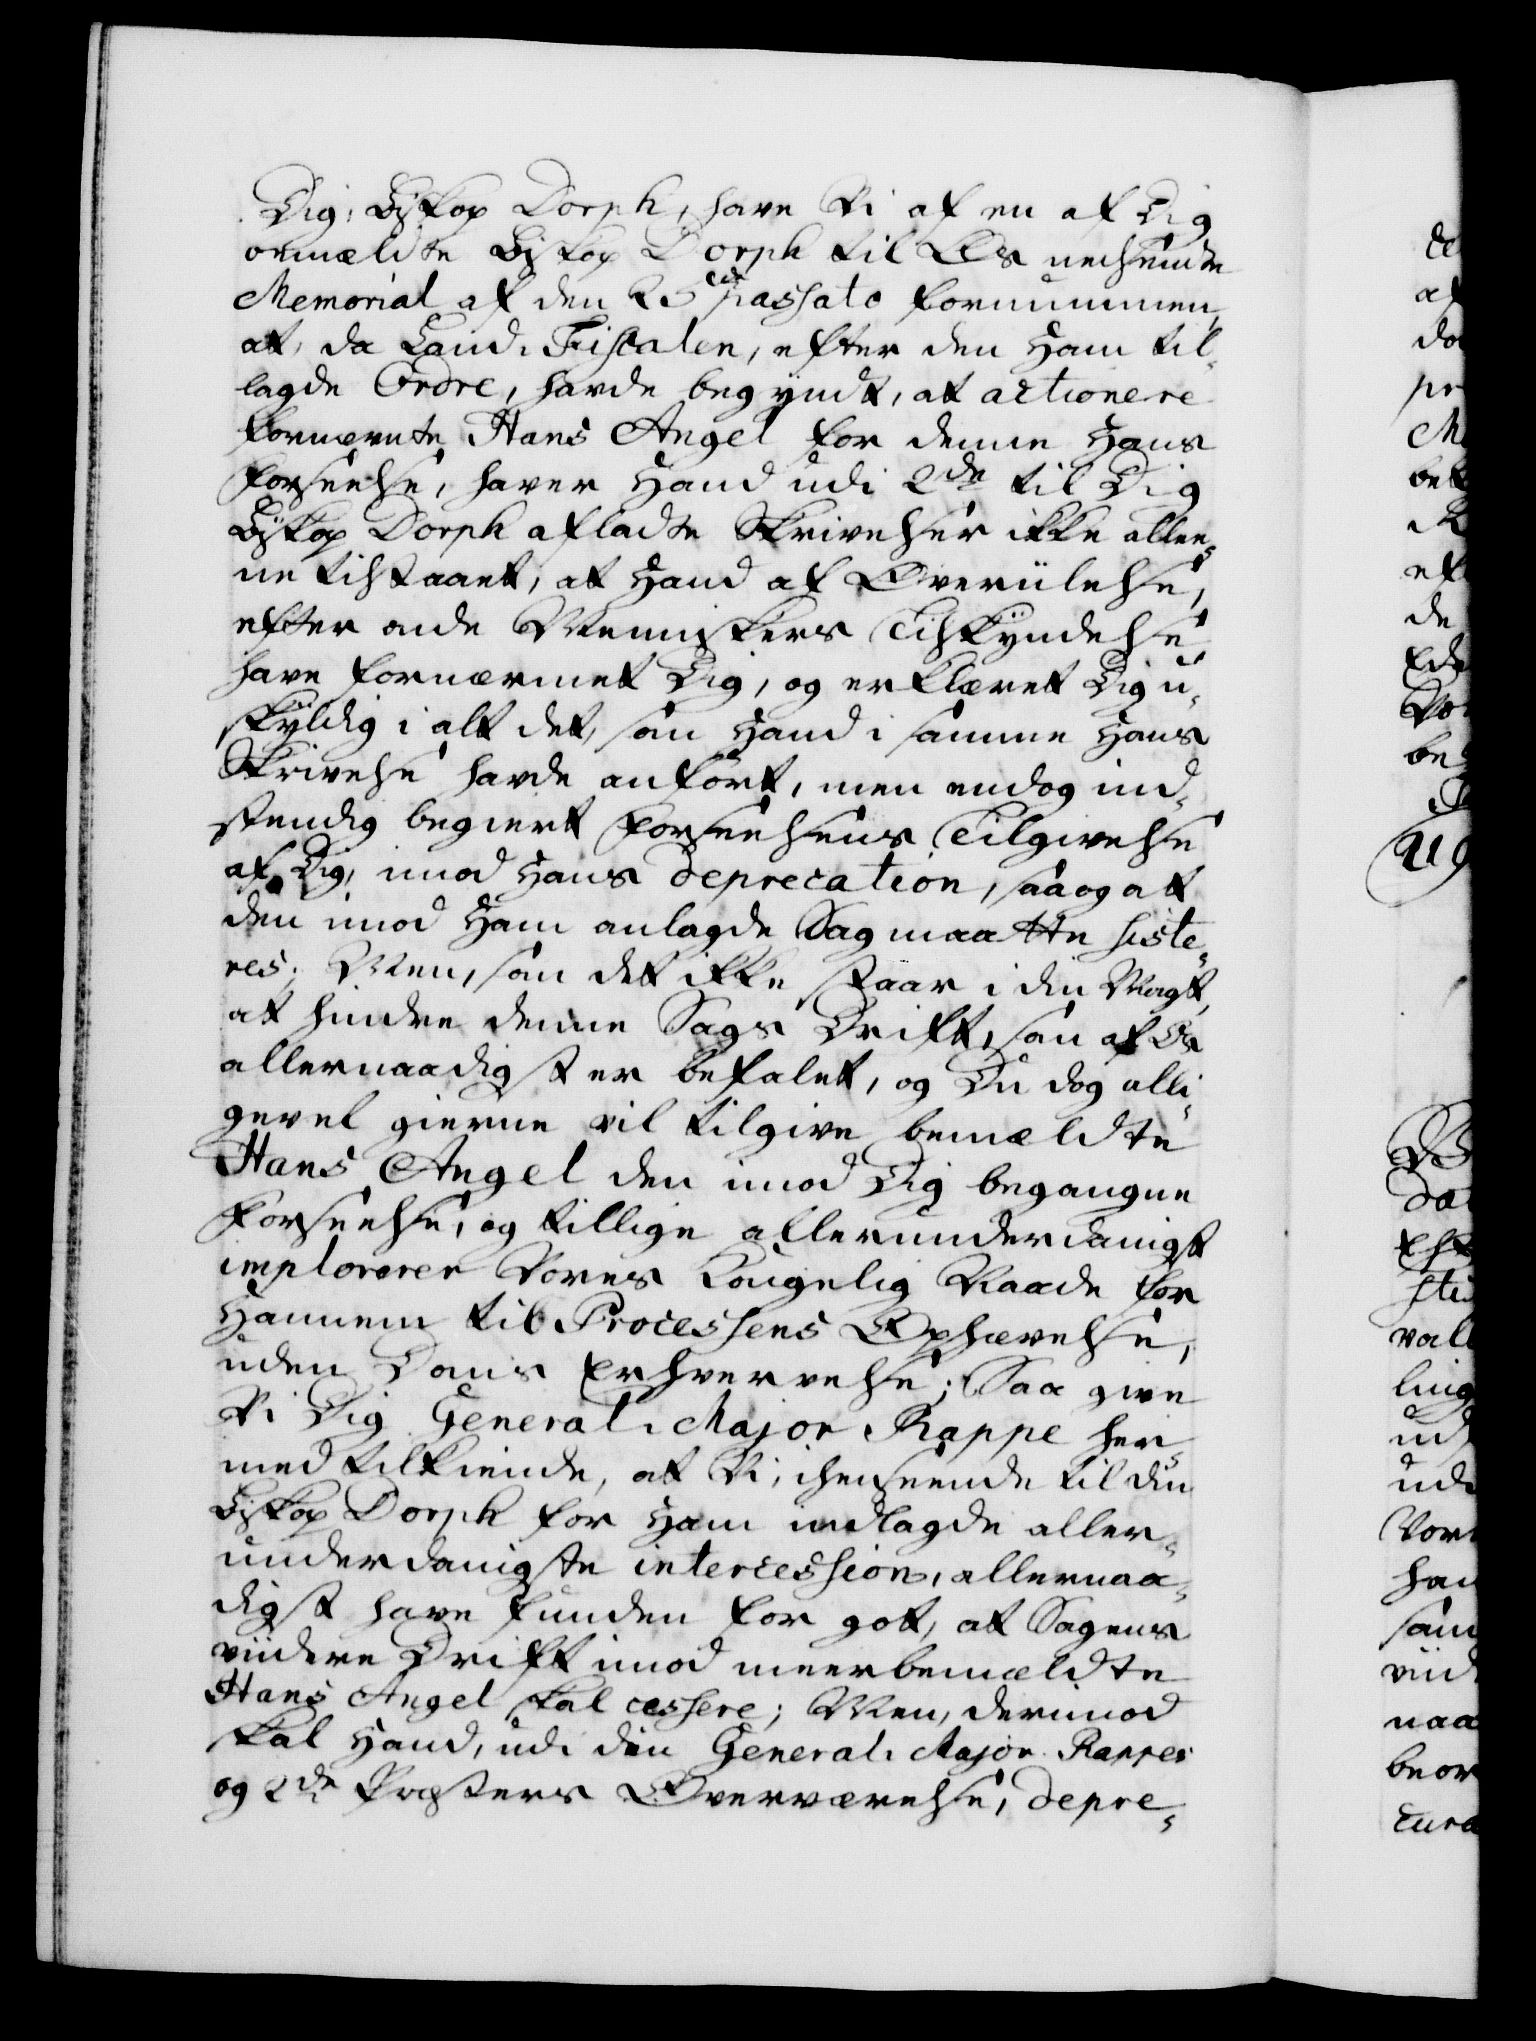 Dig, Biskop Dorph, have Vi af en af Dig
ommeldte Biskop Dorph til Os nedsendte
Memorial af den 25de passato fornummen,
at, da Land-Fiscalen, efter den Ham til-
lagde Ordre, havde begyndt, at actionere
fornevnte Hans Angel for denne Hans
Forseelse, haver Hand udi 2de til Dig
Biskop Dorph afladte Skrivelser ikke allee-
ne tilstaaet, at Hand af Overiilelse,
efter onde Menniskers Tilskyndelse
have fornærmet Dig, og erklæret Dig u-
skyldig i alt det, som Hand i samme Hans
Skrivelse havde anført, men endog ind-
stendig begiert Forseelsens Tilgivelse
af Dig, imod Hans deprecation, saa og at
den imod Ham anlagde Sag maatte siste-
res; Men, som det ikke staar i din Magt,
at hindre denne Sags Drift, som af Os
allernaadigst er befalet, og Du dog alli-
gevel gierne vil tilgive bemeldte
Hans Angel den imod Dig begangne
Forseelse, og tillige allerunderdanigst
implorerer Vores Kongelig Naade for
Hannem til Processens Ophævelse,
uden Doms Erhvervelse; Saa give
Vi Dig General-Major Rappe her-
med tilkiende, at Vi, i henseende til din
Biskop Dorph for Ham indlagde aller-
underdanigste intercession, allernaa-
digst have funden for got, at Sagens
viidere Drift imod meerbemeldte
Hans Angel skal cessere; Men, derimod
skal Hand, udi din General-Major Rappes
og 2de Præsters Overværelse, depre-